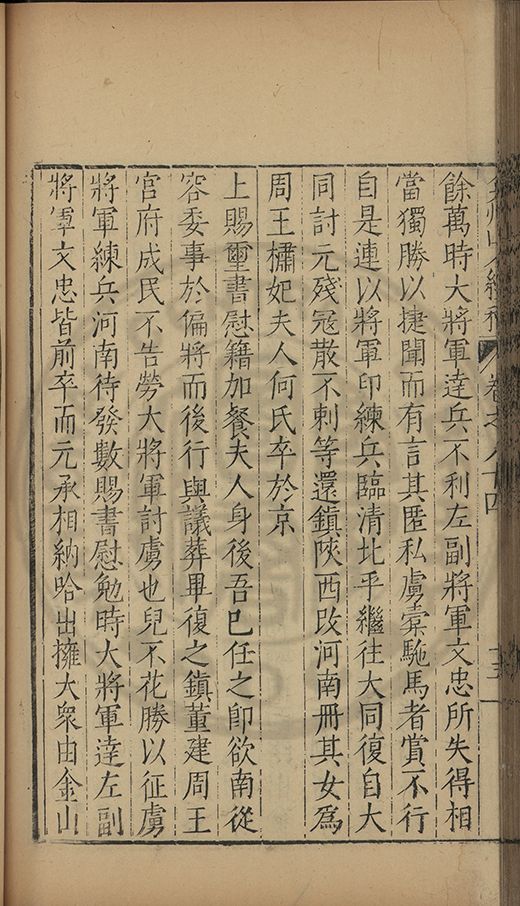 弇州山人續稿 卷之八十四
餘萬時大將軍達兵不利左副將軍文忠所失得相
當獨勝以捷聞而有言其匿私虜橐駞馬者賞不行
自是連以將軍印練兵臨清北平繼往大同復自大
同討元殘冦散不剌等還鎮陝西改河南冊其女爲
周王橚妃夫人何氏卒於京
上賜璽書慰籍加餐夫人身後吾巳任之即欲南從
容委事於偏將而後行與議葬畢復之鎮董建周王
宮府成民不告勞大將軍討虜也兒不花勝以征虜
將軍練兵河南待發數賜書慰勉時大將軍達左副
將軍文忠皆前卒而元丞相納哈出擁大衆由金山